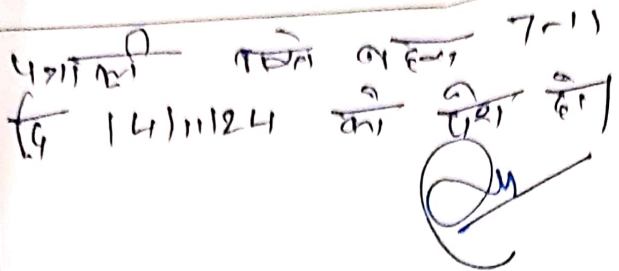 पत्रावली वास्ते बहस 7-11
दि 14/11/24 को पेश हो।